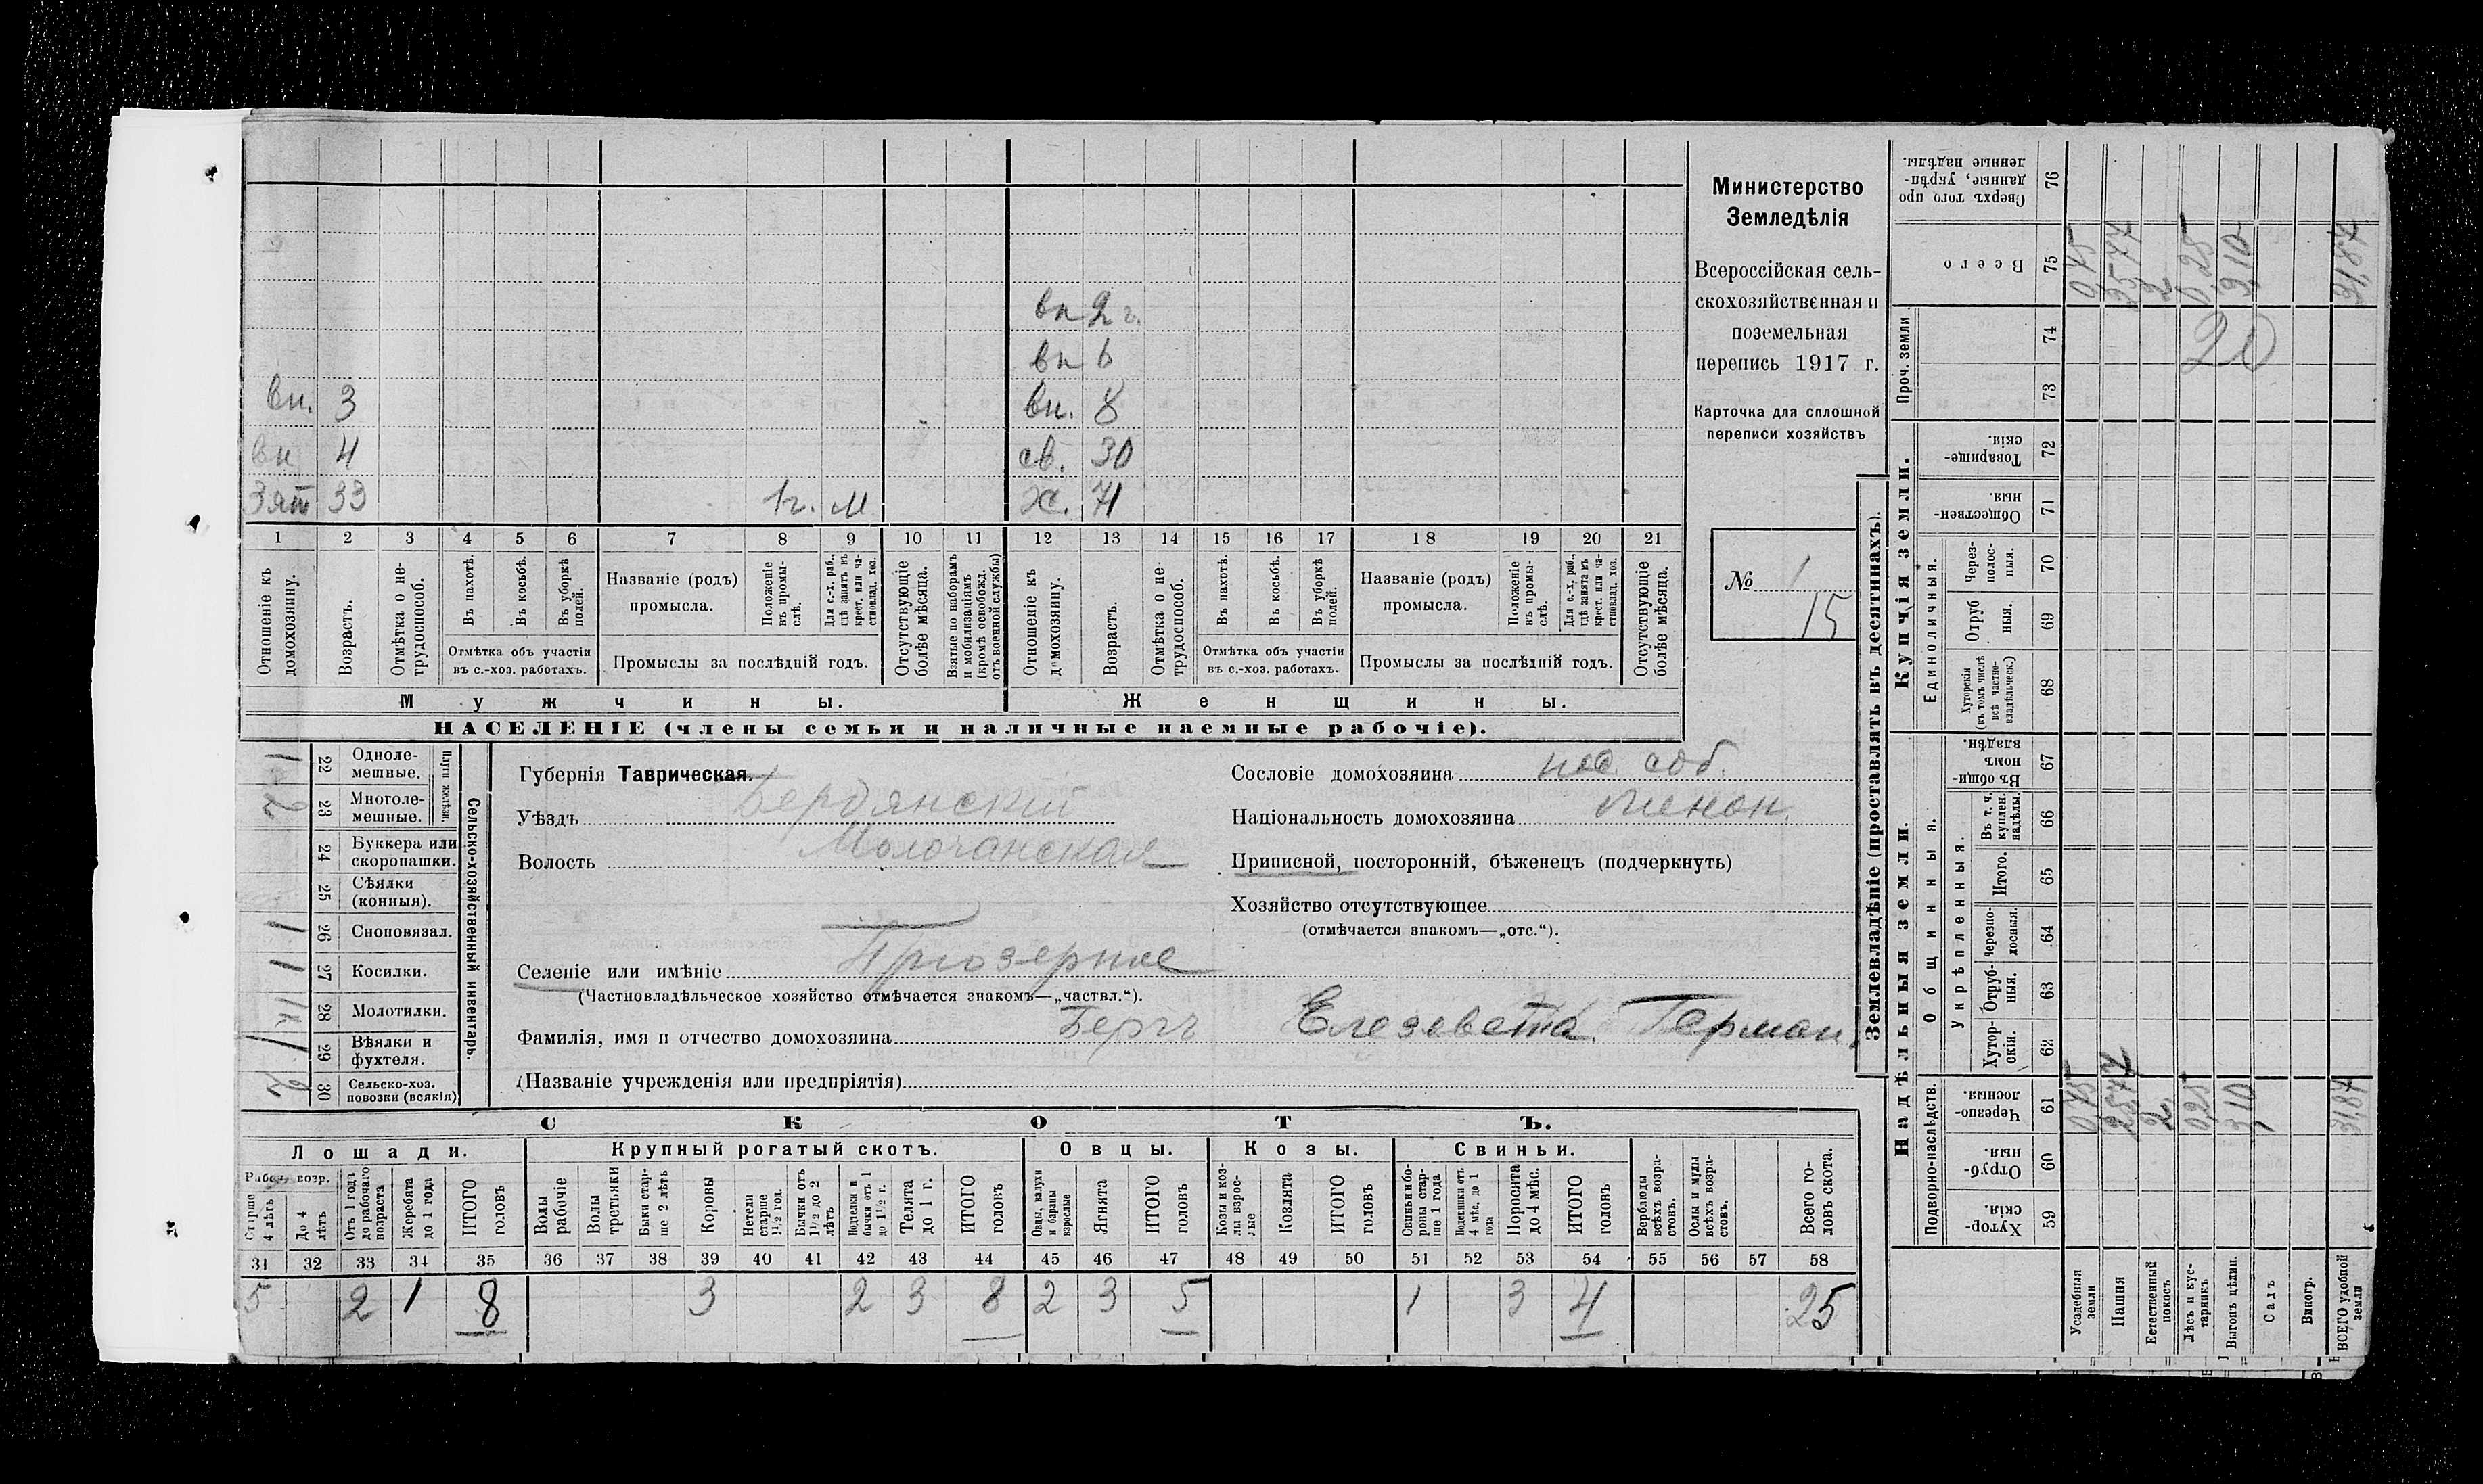 Министерство
Земледѣлія
Всероссійская сель-
скохозяйственная и
поземельная
перепись 1917 г.
Карточка для сплошной
переписи хозяйствъ
№ 1
15
вн 2 г.
вн 6
вн. 3 вн. 8
вн 4 св. 30
Зят 33 1г. М х. 71
1 2 3 4 5 6 7 8 9 10 11 12 13 14 15 16 17 18 19 20 21
Отношеніе къ домохозяину.
Возрастъ.
Отмѣтка о не-трудоспособ.
Въ пахотѣ.
Въ косьбѣ.
Въ уборкѣ полей.
Отмѣтка объ участіи
въ с.-хоз. работахъ.
Названіе (родъ)
промысла.
Положеніе въ промы-слѣ.
Для с.-х. раб., гдѣ занятъ въ крест. или ча-стновлад. хоз.
Промыслы за послѣдній годъ.
Отсутствующіе болѣе мѣсяца.
Взятые по наборамъ и мобилизаціямъ (кромѣ освобожд. отъ военной службы)
Отношеніе къ домохозяину.
Возрастъ.
Отмѣтка о не-трудоспособ.
Въ пахотѣ.
Въ косьбѣ.
Въ уборкѣ полей.
Отмѣтка объ участіи
въ с.-хоз. работахъ.
Названіе (родъ)
промысла.
Положеніе въ промы-слѣ.
Для с.-х. раб., гдѣ занята въ крест. или ча-стновлад. хоз.
Промыслы за послѣдній годъ.
Отсутствующіе болѣе мѣсяца.
Мужчины.
Женщины.
НАСЕЛЕНІЕ (члены семьи и наличные наемные рабочіе).
Сельско-хозяйственный инвентарь.
Плуги желѣзн.
1 22 Одноле-мешные.
2 23 Многоле-мешные.
24 Буккера или скоропашки.
25 Сѣялки (конныя).
1 26 Сноповязал.
1 27 Косилки.
28 Молотилки.
1 29 Вѣялки и фухтеля.
30 Сельско-хоз. повозки (всякія)
Губернія Таврическая.
Уѣздъ Бердянскій
Волость Молочанская
Селеніе или имѣніе Приозерное
(Частновладѣльческое хозяйство отмѣчается знакомъ—„частвл.“).
Фамилія, имя и отчество домохозяина Бергъ Елезевета Герман.
(Названіе учрежденія или предпріятія)
Сословіе домохозяина пос. соб.
Національность домохозяина менон.
Приписной, посторонній, бѣженецъ (подчеркнуть)
Хозяйство отсутствующее
(отмѣчается знакомъ—„отс.“).
СКОТЪ.
Лошади.
Крупный рогатый скотъ.
Овцы.
Козы.
Свиньи.
Рабоч. возр.
Старше 4 лѣтъ
До 4 лѣтъ
Отъ 1 года до рабочаго возраста
Жеребята до 1 года
ИТОГО головъ
Волы рабочіе
Волы третьяки
Быки стар-ше 2 лѣтъ
Коровы
Нетели старше 1½ год.
Бычки отъ 1½ до 2 лѣтъ
Подтелки и бычки отъ 1 до 1½ г.
Телята до 1 г.
ИТОГО головъ
Овцы, валухи и бараны взрослые
Ягнята
ИТОГО головъ
Козы и коз-лы взрос-лые
Козлята
ИТОГО головъ
Свиньи и бо-роны стар-ше 1 года
Подсвинки отъ 4 мѣс. до 1 года
Поросята до 4 мѣс.
ИТОГО головъ
Верблюды всѣхъ возра-стовъ.
Ослы и мулы всѣхъ возра-стовъ.
Всего го-ловъ скота.
31 32 33 34 35 36 37 38 39 40 41 42 43 44 45 46 47 48 49 50 51 52 53 54 55 56 57 58
5 2 1 8 3 2 3 8 2 3 5 1 3 4 25
Землевладѣніе (проставлять въ десятинахъ).
Надѣльныя земли.
Купчія земли.
Проч. земли
Подворно-наслѣдств.
Общинныя.
Укрѣпленныя.
Единоличныя.
Сверхъ того про данные, укрѣп-ленные надѣлы. 76
Всего 75
74
73
Товарище-скія. 72
Обществен-ныя. 71
Через-полос-ныя. 70
Отруб ныя. 69
Хуторскія (въ томъ числѣ всѣ частно-владѣльческ.) 68
Въ общи-номъ владѣн. 67
Въ т. ч. куплен. надѣлы. 66
Итого. 65
Черезпо-лосныя. 64
Отруб-ныя. 63
Хутор-скія. 62
Черезпо-лосныя. 61
Отруб-ныя. 60
Хутор-скія. 59
Усадебная земли
Пашня
Естественный покосъ
Лѣсъ и кус-тарникъ
Выгонъ цѣлин.
Садъ
Виногр.
ВСЕГО удобной земли
20